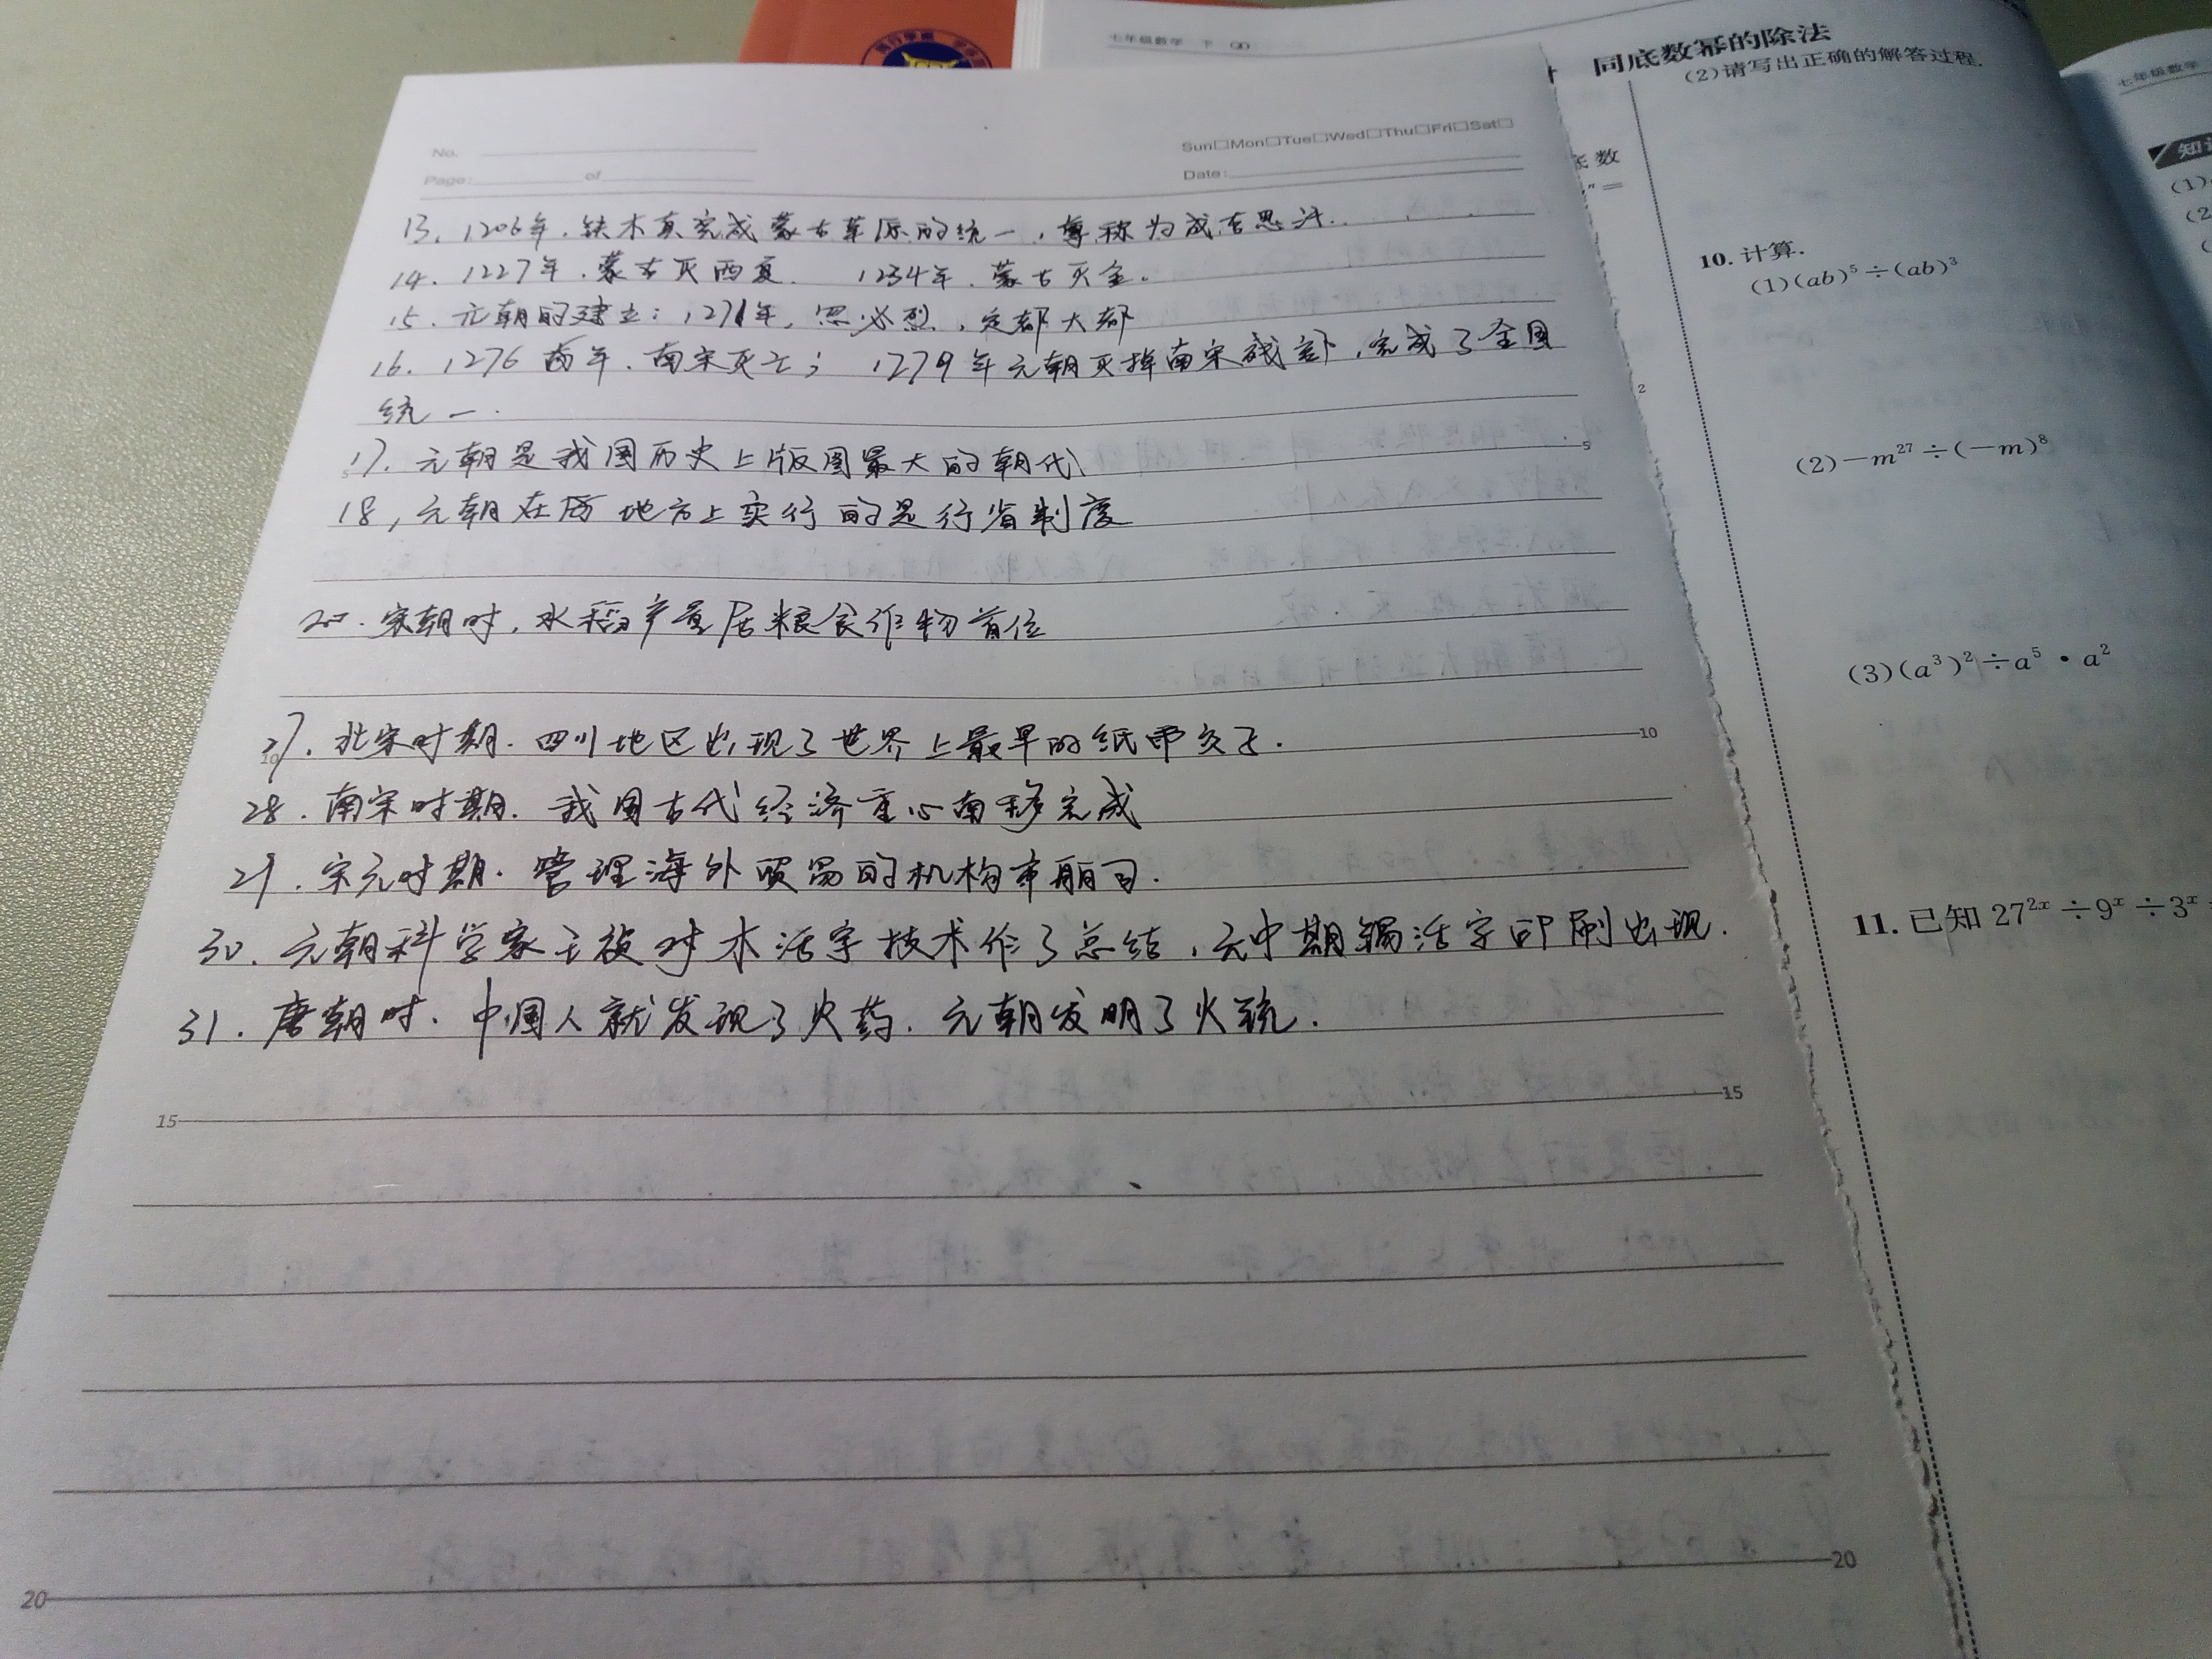 七年级数学 下 QD
No.
Sun□Mon□Tue□Wed□Thu□Fri□Sat□
Page: of
Date:
13. 1206年.铁木真完成蒙古草原的统一,尊称为成吉思汗.
14. 1227年.蒙古灭西夏. 1234年.蒙古灭金.
15. 元朝的建立:1271年,忽必烈,定都大都
16. 1276 年.南宋灭亡; 1279年元朝灭掉南宋残部,完成了全国
统一.
17. 元朝是我国历史上版图最大的朝代
5 5
18, 元朝在 地方上实行的是行省制度
20. 宋朝时,水稻产量居粮食作物首位
27. 北宋时期.四川地区出现了世界上最早的纸币交子.
10 10
28. 南宋时期.我国古代经济重心南移完成
29. 宋元时期.管理海外贸易的机构市舶司.
30. 元朝科学家王祯对木活字技术作了总结,元中期锡活字印刷出现.
31. 唐朝时.中国人就发现了火药.元朝发明了火铳.
15 15
20 20
同底数幂的除法
(2)请写出正确的解答过程.
底数
"=
10. 计算.
(1)(ab)⁵÷(ab)³
2
(2)-m²⁷÷(-m)⁸
(3)(a³)²÷a⁵·a²
11. 已知 27²ˣ÷9ˣ÷3ˣ
七年级数学
(1)
(2
(